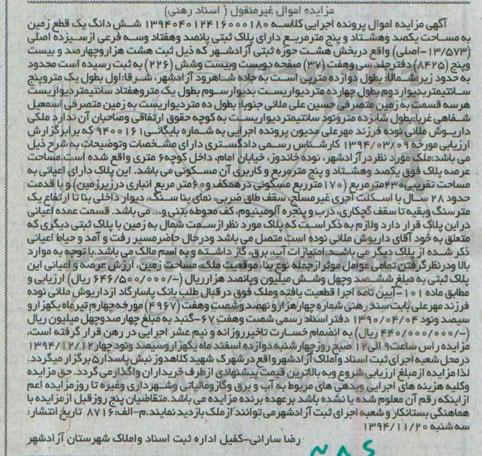 مزایده اموال غیرمنقول ( اسناد رهنی)
آگهی مزایده اموال پرونده اجرایی کلاسه ۱۳۹۴۰۴۰۱۲۴۱۶۰۰۰۱۸۰ شش دانگ یک قطع زمین
به مساحت یکصد وهشتاد و پنج مترمربع دارای پلاک ثبتی پانصد وهفتاد وسه فرعی ازسیزده اصلی
(۱۳/۵۷۳-اصلی) واقع دربخش هشت حوزه ثبتی آزادشهر که ذیل ثبت هشت هزاروچهارصد و بیست
وپنج (۸۴۲۵) دفترجلد سی وهفت (۳۷) صفحه دویست وبیست وشش (۲۲۶) به ثبت رسیده است محدود
به حدود زیر:شمالا: بطول دوازده متر پی است به جاده شاهرود آزادشهر، شرقا: اول بطول یک متروپنج
سانتیمتر بدیوار دوم بطول چهارده متردیواریست بدیوار سوم بطول یک متروهفتاد سانتیمتر دیواریست
هرسه قسمت به زمین متصرفی حسین علی ملانی جنوبا: بطول ده متردیواریست به زمین متصرفی اسمعیل
شفاهی غربا: بطول شانزده متر ونود سانتیمتر دیواریست به کوچه حقوق ارتفاقی وصاحبان آن ندارد ملکی
داریوش ملانی نوده فرزند مهرعلی مدیون پرونده اجرایی به شماره بایگانی ۹۴۰۰۱۶۱ که برابر گزارش
ارزیابی مورخه ۱۳۹۴/۰۳/۰۹ کارشناس رسمی دادگستری دارای مشخصات وتوضیحات به شرح ذیل
می باشد: ملک مورد نظر در آزادشهر، نوده خاندوز، خیابان امام، داخل کوچه ۶ متری واقع شده است. مساحت
عرصه پلاک فوق یکصد وهشتاد و پنج مترمربع و کاربری آن مسکونی می باشد. این پلاک دارای اعیانی به
مساحت تقریبی ۲۳۰مترمربع (۱۷۰ مترمربع مسکونی درهمکف و۶۰متر مربع انباری درزیرزمین) و با قدمت
حدود ۲۸ سال با اسکلت آجری غیرمسلح، سقف طاق ضربی، نمای بنا سنگ، دیوار داخلی بنا تا ارتفاع یک
متر سنگ وبقیه تا سقف گچکاری، درب و پنجره آلومینیوم، کف محوطه بتنی و... می باشد. قسمت عمده اعیانی
در این پلاک قرار دارد ولازم به ذکر است که پلاک مورد نظر ازسمت شمال به زمین با پلاک ثبتی دیگری که
متعلق به خود آقای داریوش ملانی نوده است متصل می باشد ودرحال حاضر مسیر رفت و آمد و حیاط اعیانی
ذکر شده از پلاک دیگر می باشد. امتیازات آب، برق، گاز داشته و به اسم مالک می باشد. با توجه به موارد
بالا ودرنظرگرفتن تمامی عوامل موثر از جمله نوع بنا، موقعیت ملک، مساحت زمین، ارزش عرصه و اعیانی این
پلاک ثبتی به مبلغ ششصد وچهل وشش میلیون وپانصد هزارریال (-/۶۴۶/۵۰۰/۰۰۰ ریال) ارزیابی و
مطابق ماده ۱۰۱-آیین نامه اجرا قطعیت یافته وملک فوق در قبال طلب بانک پاسارگاد از داریوش ملانی نوده
فرزند مهرعلی بابت سند رهنی شماره چهارهزار ونهصد وشصت وهفت (۴۹۶۷) مورخه چهارم تیرماه یکهزار و
سیصد ونود ۱۳۹۰/۰۴/۰۴ دفتر اسناد رسمی شصت وهفت ۶۷-گنبد به مبلغ چهارصد وچهل میلیون ریال
(-/۴۴۰/۰۰۰/۰۰۰ ریال) به انضمام خسارت تاخیر روزانه و نیم عشر اجرایی در رهن قرار گرفته است،
مزایده راس ساعت ۹ الی ۱۲ صبح روز چهارشنبه دوازده اسفند ماه یکهزار وسیصد ونود چهار ۱۳۹۴/۱۲/۱۲
درمحل شعبه اجرای ثبت اسناد و املاک آزادشهر واقع در شهرک شهید کلاهدوز نبش پاسدار ۵ برگزار میگردد.
لذا مزایده از مبلغ ارزیابی شروع و به بالاترین قیمت پیشنهادی از طرف خریداران واگذار می گردد. حق مزایده
وکلیه هزینه های اجرایی وبدهی های مربوط به آب و برق وگاز ومالیاتی وشهرداری وغیره تا روز مزایده اعم
از اینکه رقم آن معلوم شده یا نشده باشد برعهده برنده مزایده می باشد. متقاضیان پنج روز قبل از مزایده با
هماهنگی بستانکار و شعبه اجرای ثبت آزادشهر می توانند از ملک بازدید نمایند. م-الف: ۸۷۱۶ تاریخ انتشار:
سه شنبه ۱۳۹۴/۱۱/۲۰
رضا سارانی-کفیل اداره ثبت اسناد واملاک شهرستان آزادشهر